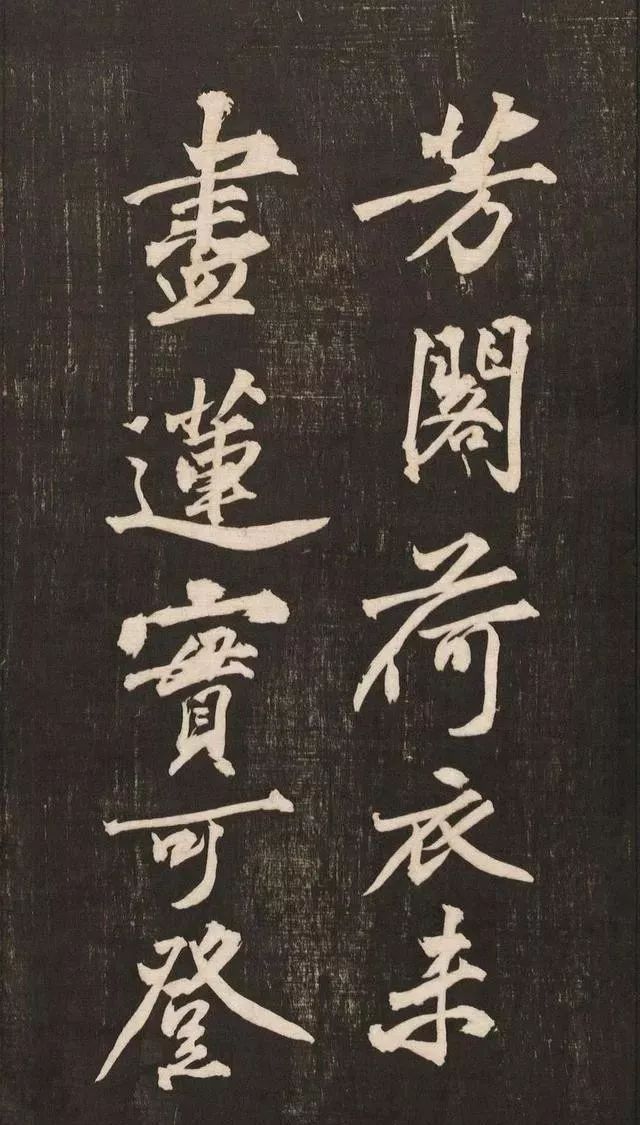 芳閣荷衣未
盡蓮實可登